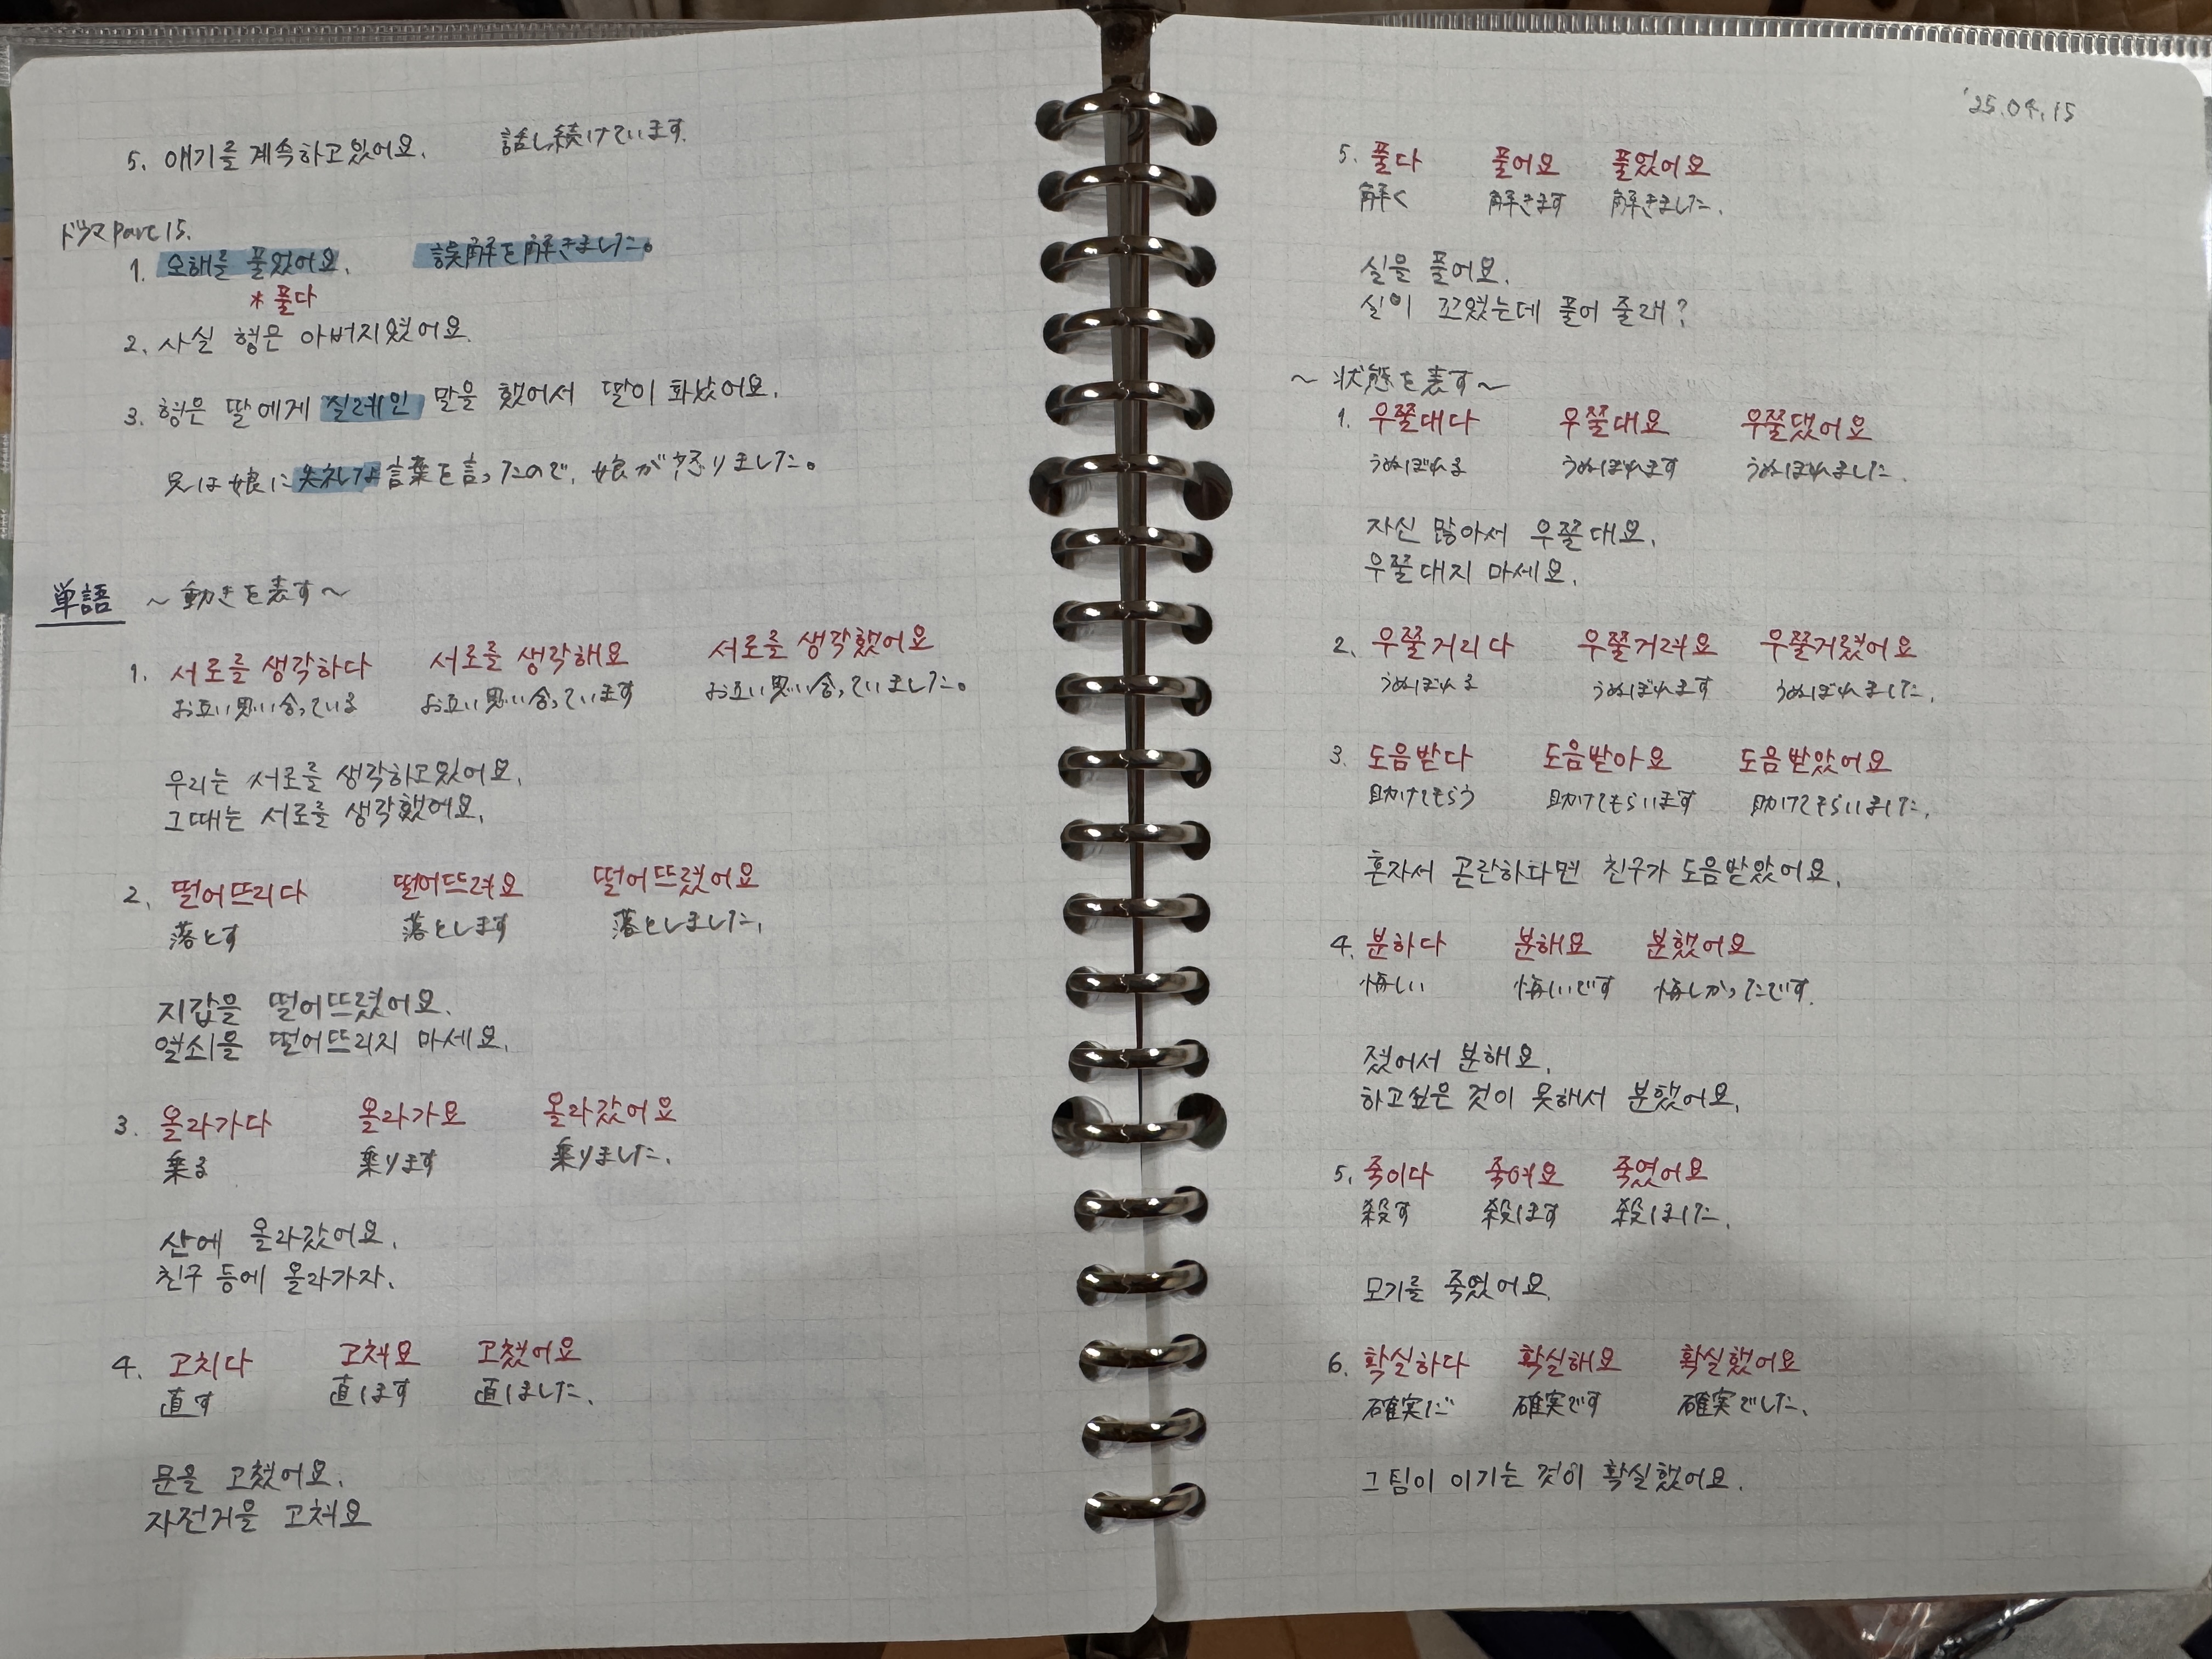 5. 얘기를 계속하고있어요. 話し続けています.
ドラマ Part 15.
1. 오해를 풀었어요. 誤解を解きました。
* 풀다
2. 사실 형은 아버지였어요.
3. 형은 딸에게 실례인 말을 했어서 딸이 화났어요.
兄は娘に失礼な言葉を言ったので, 娘が怒りました。
単語 ~動きを表す~
1. 서로를 생각하다 서로를 생각해요 서로를 생각했어요
お互い思い合っている お互い思い合っています お互い思い合っていました。
우리는 서로를 생각하고있어요.
그때는 서로를 생각했어요.
2. 떨어뜨리다 떨어뜨려요 떨어뜨렸어요
落とす 落とします 落としました.
지갑을 떨어뜨렸어요.
열쇠를 떨어뜨리지 마세요.
3. 올라가다 올라가요 올라갔어요
乗る 乗ります 乗りました.
산에 올라갔어요.
친구 등에 올라가자.
4. 고치다 고쳐요 고쳤어요
直す 直します 直しました.
문을 고쳤어요.
자전거을 고쳐요
'25.04.15
5. 풀다 풀어요 풀었어요
解く 解きます 解きました.
실을 풀어요.
실이 꼬였는데 풀어 줄래?
~状態を表す~
1. 우쭐대다 우쭐대요 우쭐댔어요
うぬぼれる うぬぼれます うぬぼれました.
자신 많아서 우쭐대요.
우쭐대지 마세요.
2. 우쭐거리다 우쭐거려요 우쭐거렸어요
うぬぼれる うぬぼれます うぬぼれました.
3. 도움받다 도움받아요 도움받았어요
助けてもらう 助けてもらいます 助けてもらいました.
혼자서 곤란하다면 친구가 도움받았어요.
4. 분하다 분해요 분했어요
悔しい 悔しいです 悔しかったです.
졌어서 분해요.
하고싶은 것이 못해서 분했어요.
5. 죽이다 죽여요 죽였어요
殺す 殺します 殺しました.
모기를 죽였어요.
6. 확실하다 확실해요 확실했어요
確実だ 確実です 確実でした.
그 팀이 이기는 것이 확실했어요.